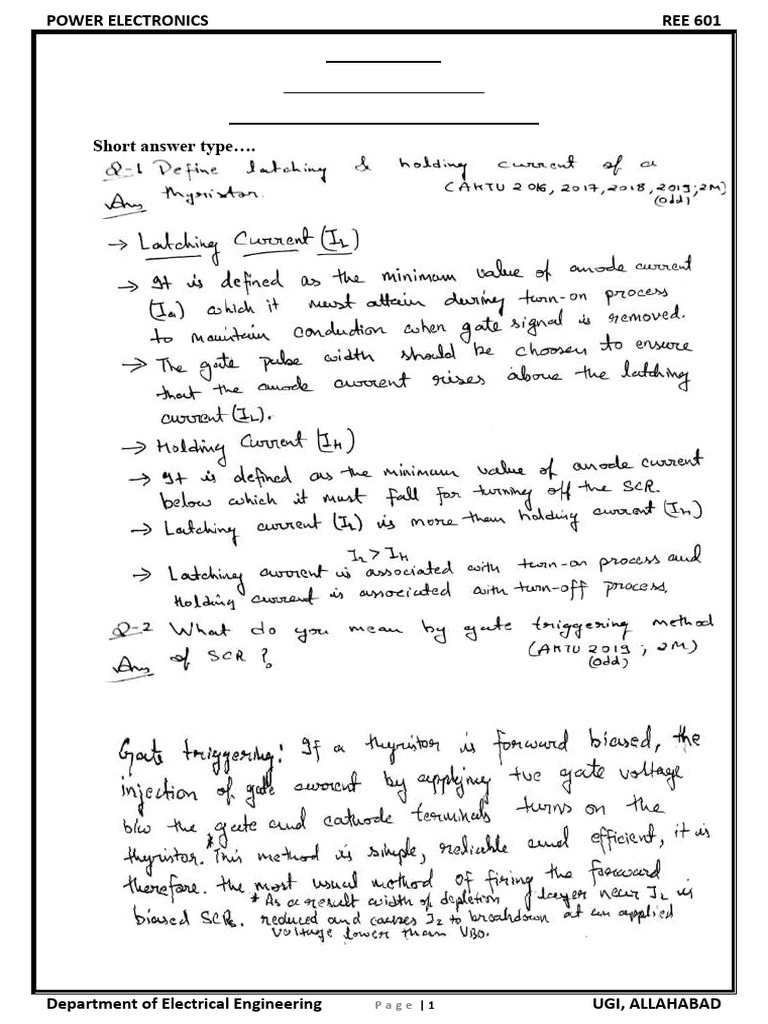 POWER ELECTRONICS REE 601
Short answer type….
Q-1 Define latching & holding current of a
Ans thyristor. (AKTU 2016, 2017, 2018, 2019; 2M)
(odd)
→ Latching Current (IL)
→ It is defined as the minimum value of anode current
(Ia) which it must attain during turn-on process
to maintain conduction when gate signal is removed.
→ The gate pulse width should be choosen to ensure
that the anode current rises above the latching
current (IL).
→ Holding Current (IH)
→ It is defined as the minimum value of anode current
below which it must fall for turning off the SCR.
→ Latching current (IL) is more than holding current (IH)
IL > IH
→ Latching current is associated with turn-on process and
Holding current is associated with turn-off process.
Q-2 What do you mean by gate triggering method
Ans of SCR? (AKTU 2019; 2M)
(odd)
Gate triggering: If a thyristor is forward biased, the
injection of gate current by applying +ve gate voltage
b/w the gate and cathode terminals turns on the
thyristor.* This method is simple, reliable and efficient, it is
therefore. the most usual method of firing the forward
biased SCRs. * As a result width of depletion layer near J2 is
reduced and causes J2 to breakdown at an applied
voltage lower than VBO.
Department of Electrical Engineering Page | 1 UGI, ALLAHABAD